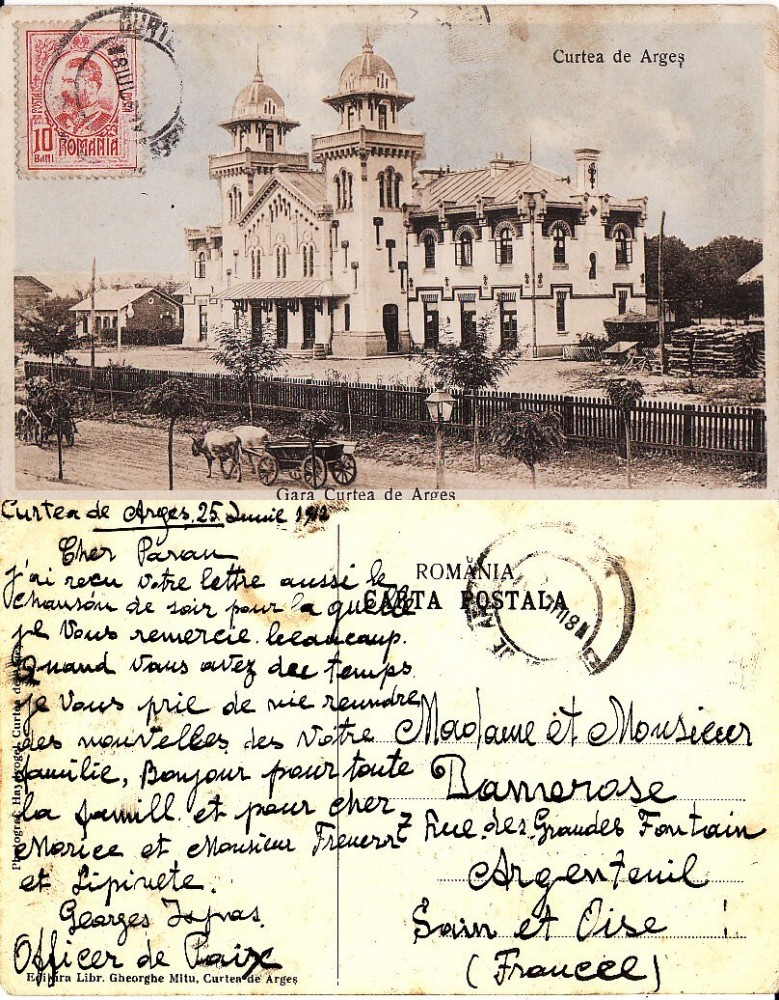 Curtea de Argeș
10
BANI
ROMANIA
Gara Curtea de Arges
Curtea de Arges. 25 Iunie
Cher Paran
j'ai recu votre lettre aussi le
chanson de soir pour la quelle
je Vous remercie beaucoup.
Quand Vous avez dee temps
je Vous prie de me reundre
des nouvelles des Votre
familie, Bonjour pour toute
la famill. et pour cher
Morice et Monsieur
et Lipinete.
Georges
Officer de Paix
Editura Libr. Gheorghe Mitu, Curtea de Argeș
ROMÂNIA
CARTA POSTALA
Madame et Monsieur
Damerose
7 Rue des Grandes Fontain
Argenteuil
Sain et Oise
(Francee)